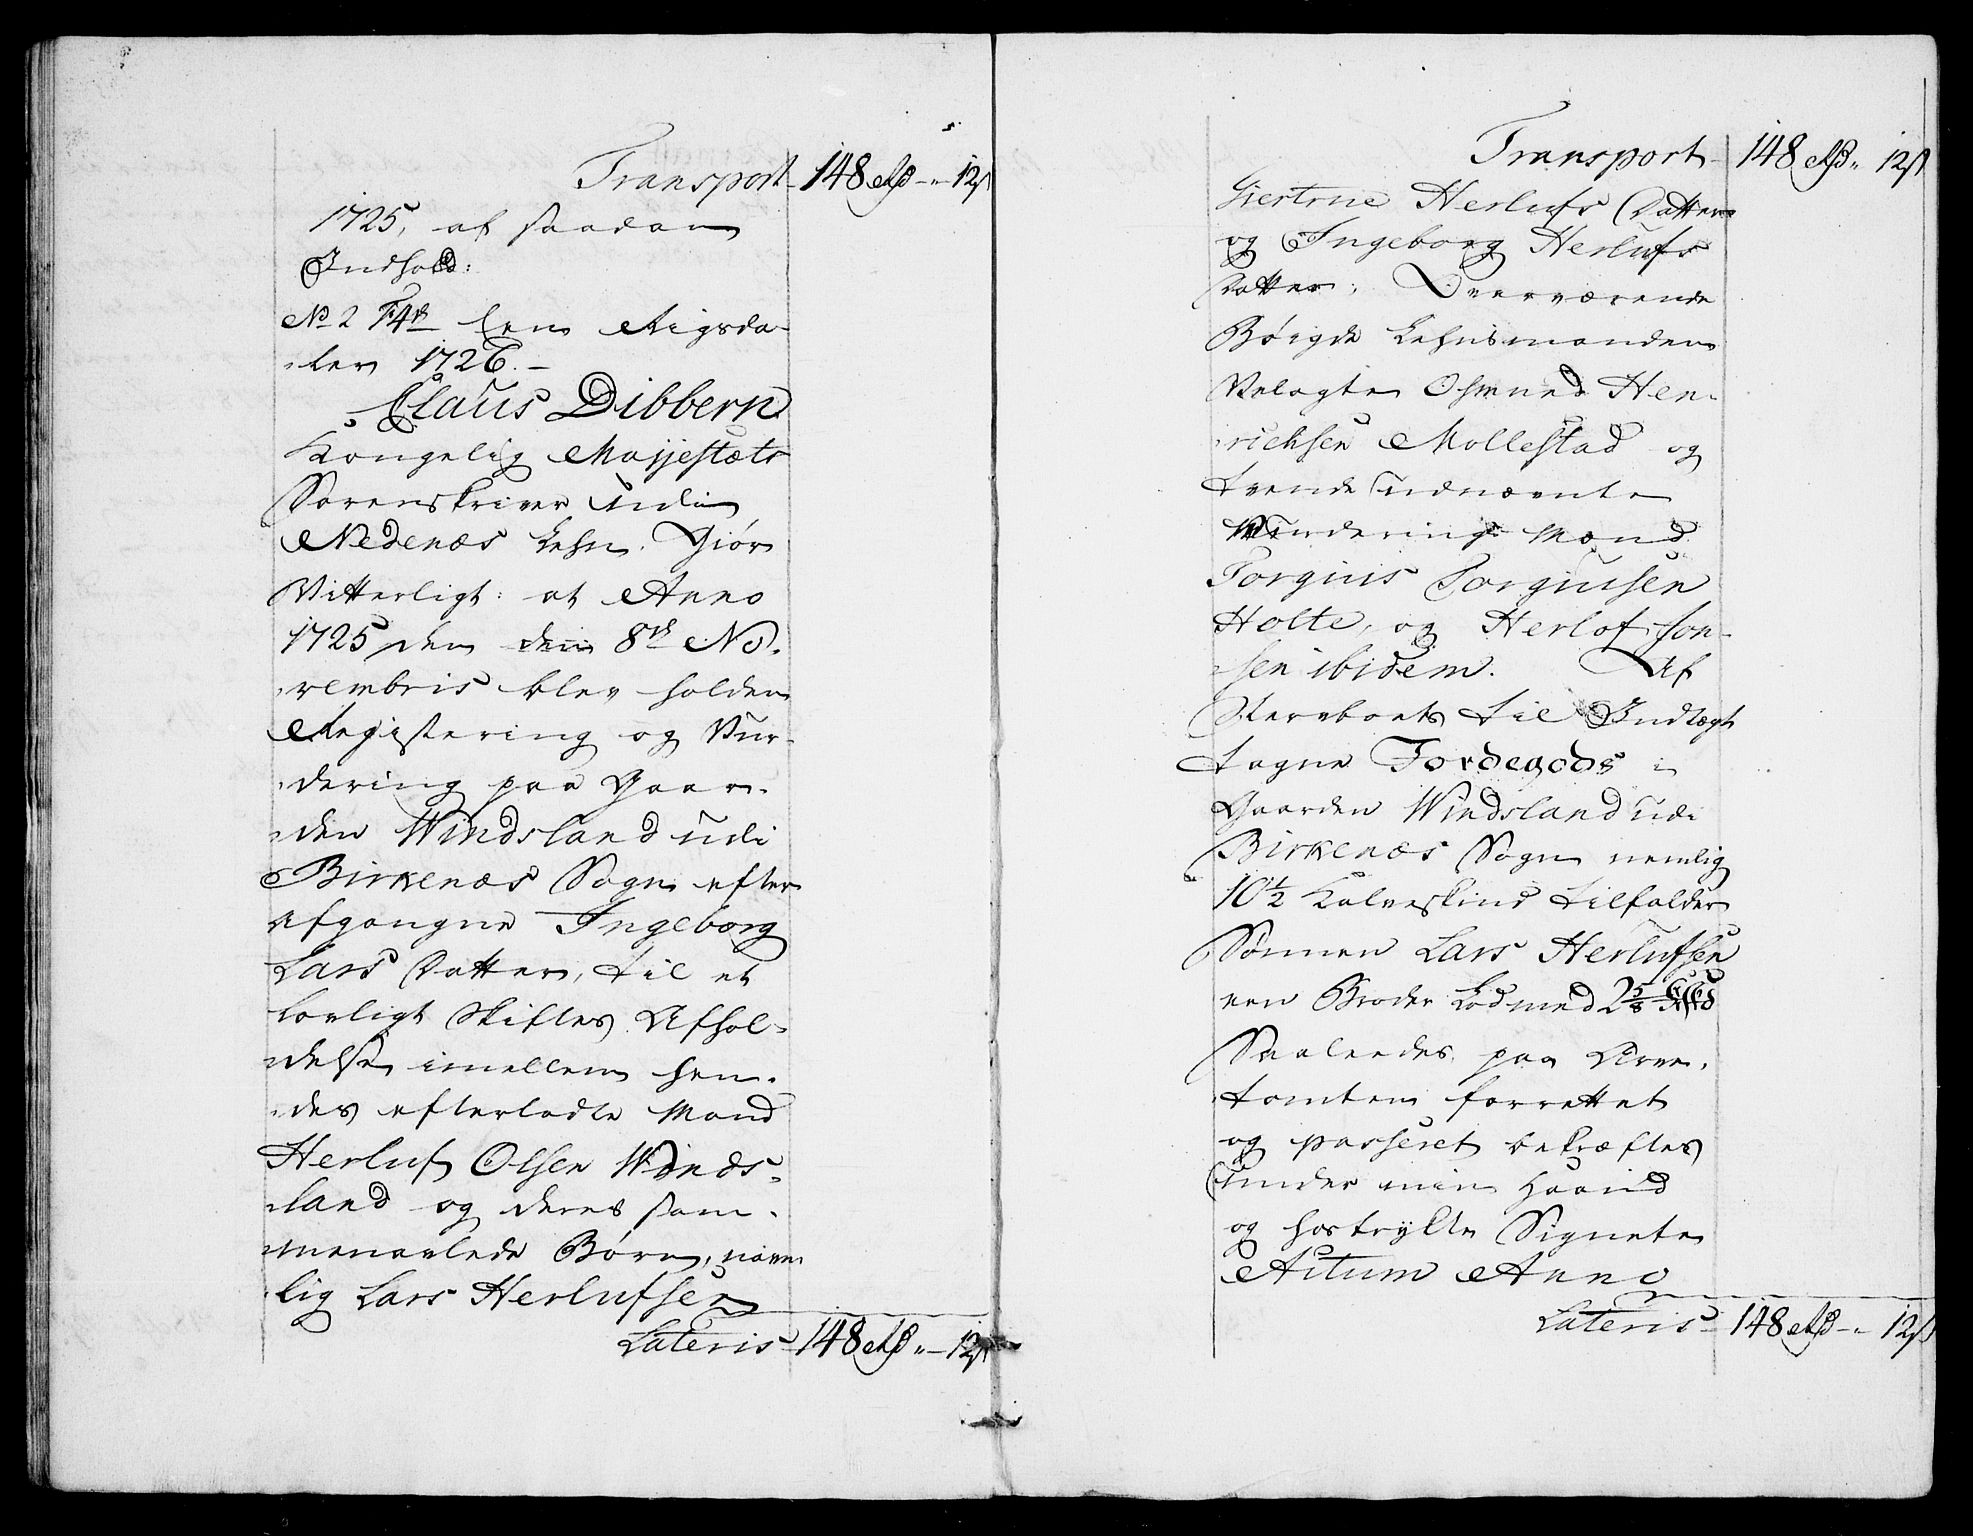 Transport 148 Rd - " - 12 s
1725, af saadan
Indhold:
No 2 F4rk Een Rigsda-
-ler 1726.-
Claus Dibbern
Kongelig Majjestæts
Sorenskriver udi
Nedenæs Lehn. Giør
Vitterligt: at Anno
1725 den den 8de No-
-vembris blev holden
Registering og Vur-
-dering paa Gaar-
-den Windsland udi
Birkenæs Sogn efter
afgangne Ingeborg
Lars Datter, til et
lovligt Skiftes Afhol-
-delse imellem hen-
-des efterladte Mand
Herluf Olsen Winds-
-land og deres sam-
-menavlede Børn, næm-
-lig Lars Herlufsen
Lateris 148 Rd " - 12 s
Transport 148 Rd " 12 s
Giertrue Herlufs Datter
og Ingeborg Herlufs
Datter; Overværende
Bøigde Lehnsmanden
Velagte Osmund Hen-
-richsen Mollestad og
tvende udnævnte
Vurderings Mænd
Torgius Torgiusen
Holte, og Herlof Jon-
-sen ibidem. Af
Sterboets til Indtægt
tagne Jordegods i
Gaarden Windsland udi
Birkenæs Sogn nemlig
10½ Kalveskind tilfalder
Sønnen Lars Herlufsen
een Broder Lod med 2⅝
Saaleedes paa Arve-
tomten forrettet
og passeret bekræftes
under min Haand
og hostrykte Signete
Actum Anno
Lateris 148 Rd - " 12 s